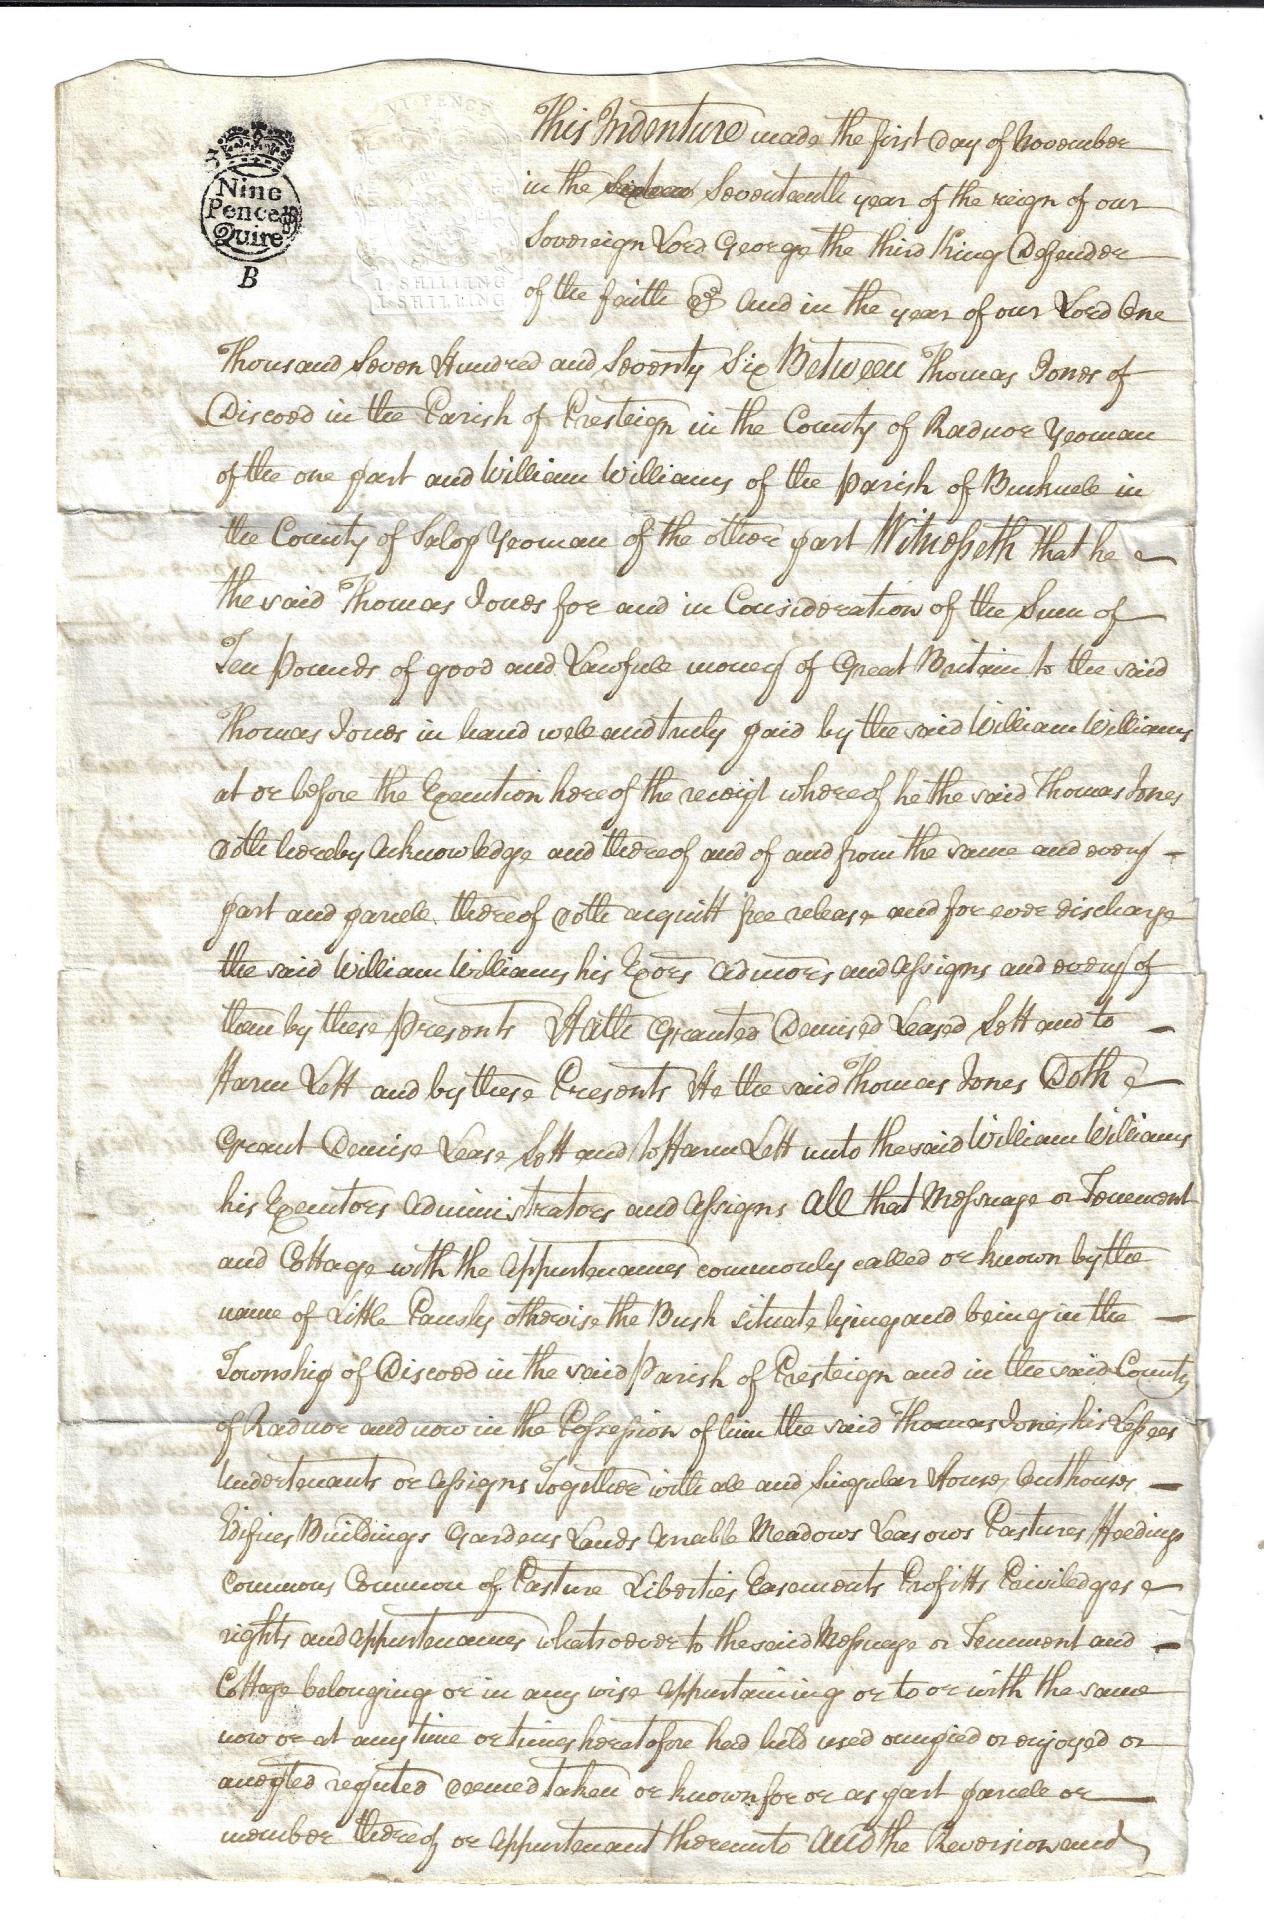 VI PENCE
Nine
Pence
Quire
B
I. SHILLING
I. SHILLING
This Indenture made the first Day of November
in the Seventeenth year of the reign of our
Sovereign Lord George the third King Defender
of the faith &c And in the year of our Lord One
Thousand Seven Hundred and Seventy Six Between Thomas Jones of
Discoed in the Parish of Presteign in the County of Radnor Yeoman
of the one part and William Williams of the parish of Bucknell in
the County of Salop Yeoman of the other part Witnesseth that he
the said Thomas Jones for and in Consideration of the Sum of
Ten pounds of good and Lawfull money of Great Britain to the said
Thomas Jones in hand well and truly paid by the said William Williams
at or before the Execution hereof the receipt whereof he the said Thomas Jones
doth hereby Acknowledge and thereof and of and from the same and every
part and parcell thereof doth acquitt free release and for ever discharge
the said William Williams his Exors Admors and Assigns and every of
them by these presents Hath Granted Demised Leased Sett and to
Harm Lett and by these Presents He the said Thomas Jones Doth
Grant Demise Lease Sett and to Harm Lett unto the said William Williams
his Executors Administrators and Assigns All that Messuage or Tenement
and Cottage with the Appurtenances commonly called or known by the
name of Little otherwise the Bush situate lying and being in the
Township of Discoed in the said Parish of Presteign and in the said County
of Radnor and now in the Possession of him the said Thomas Jones his Lessees
Undertenants or Assigns Together with all and Singular Houses Outhouses
Edifices Buildings Gardens Lands Arrable Meadows Leasows Pastures Feedings
Commons Common of Pasture Liberties Easements Profitts Priviledges
rights and Appurtenances whatsoever to the said Messuage or Tenement and
Cottage belonging or in any wise Appurtaining or to or with the same
now or at any time or times heretofore had held used occupied or enjoyed or
accepted reputed deemed taken or known for or as part parcell or
member thereof or Appurtenant thereunto And the Reversion and